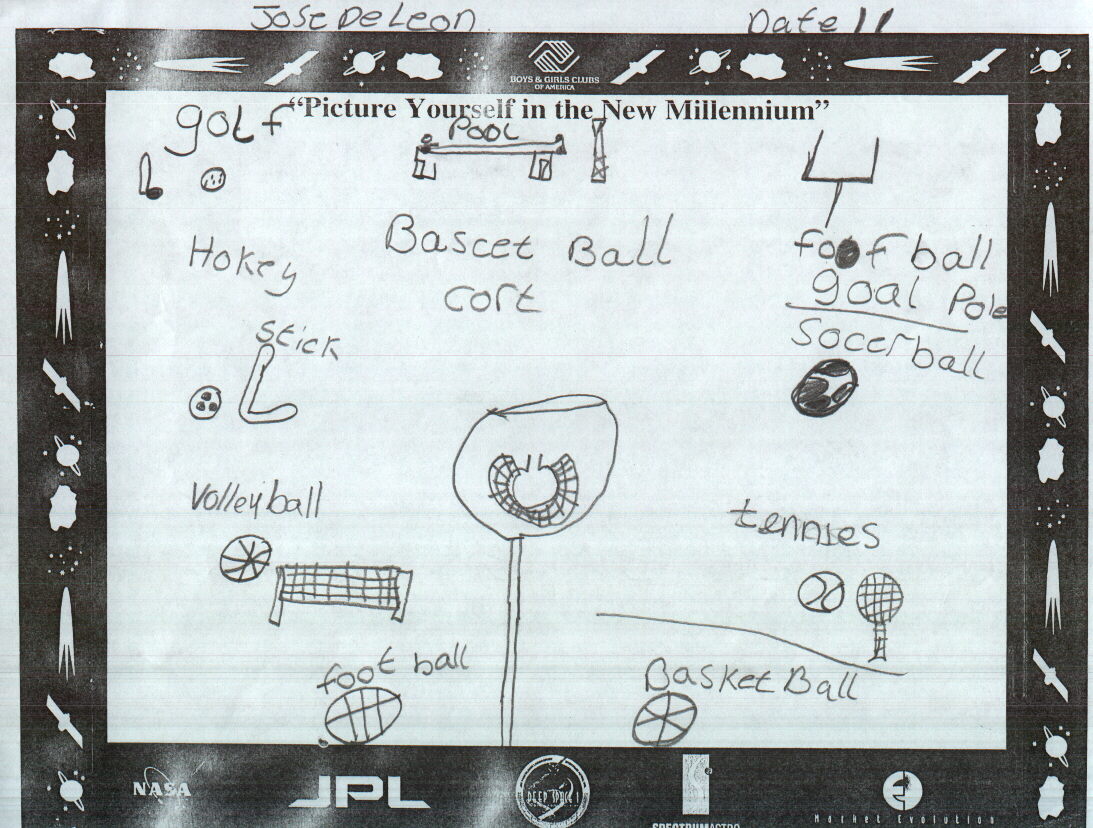 Jose DeLeon Date 11
BOYS & GIRLS CLUBS
OF AMERICA
“Picture Yourself in the New Millennium”
golf
POOL
Bascet Ball
cort
foot ball
goal Pole
Soccerball
Hokey
stick
Volleyball
tennies
foot ball
BasketBall
NASA
JPL
DEEP SPACE 1
SPECTRUMASTRO
Market Evolution